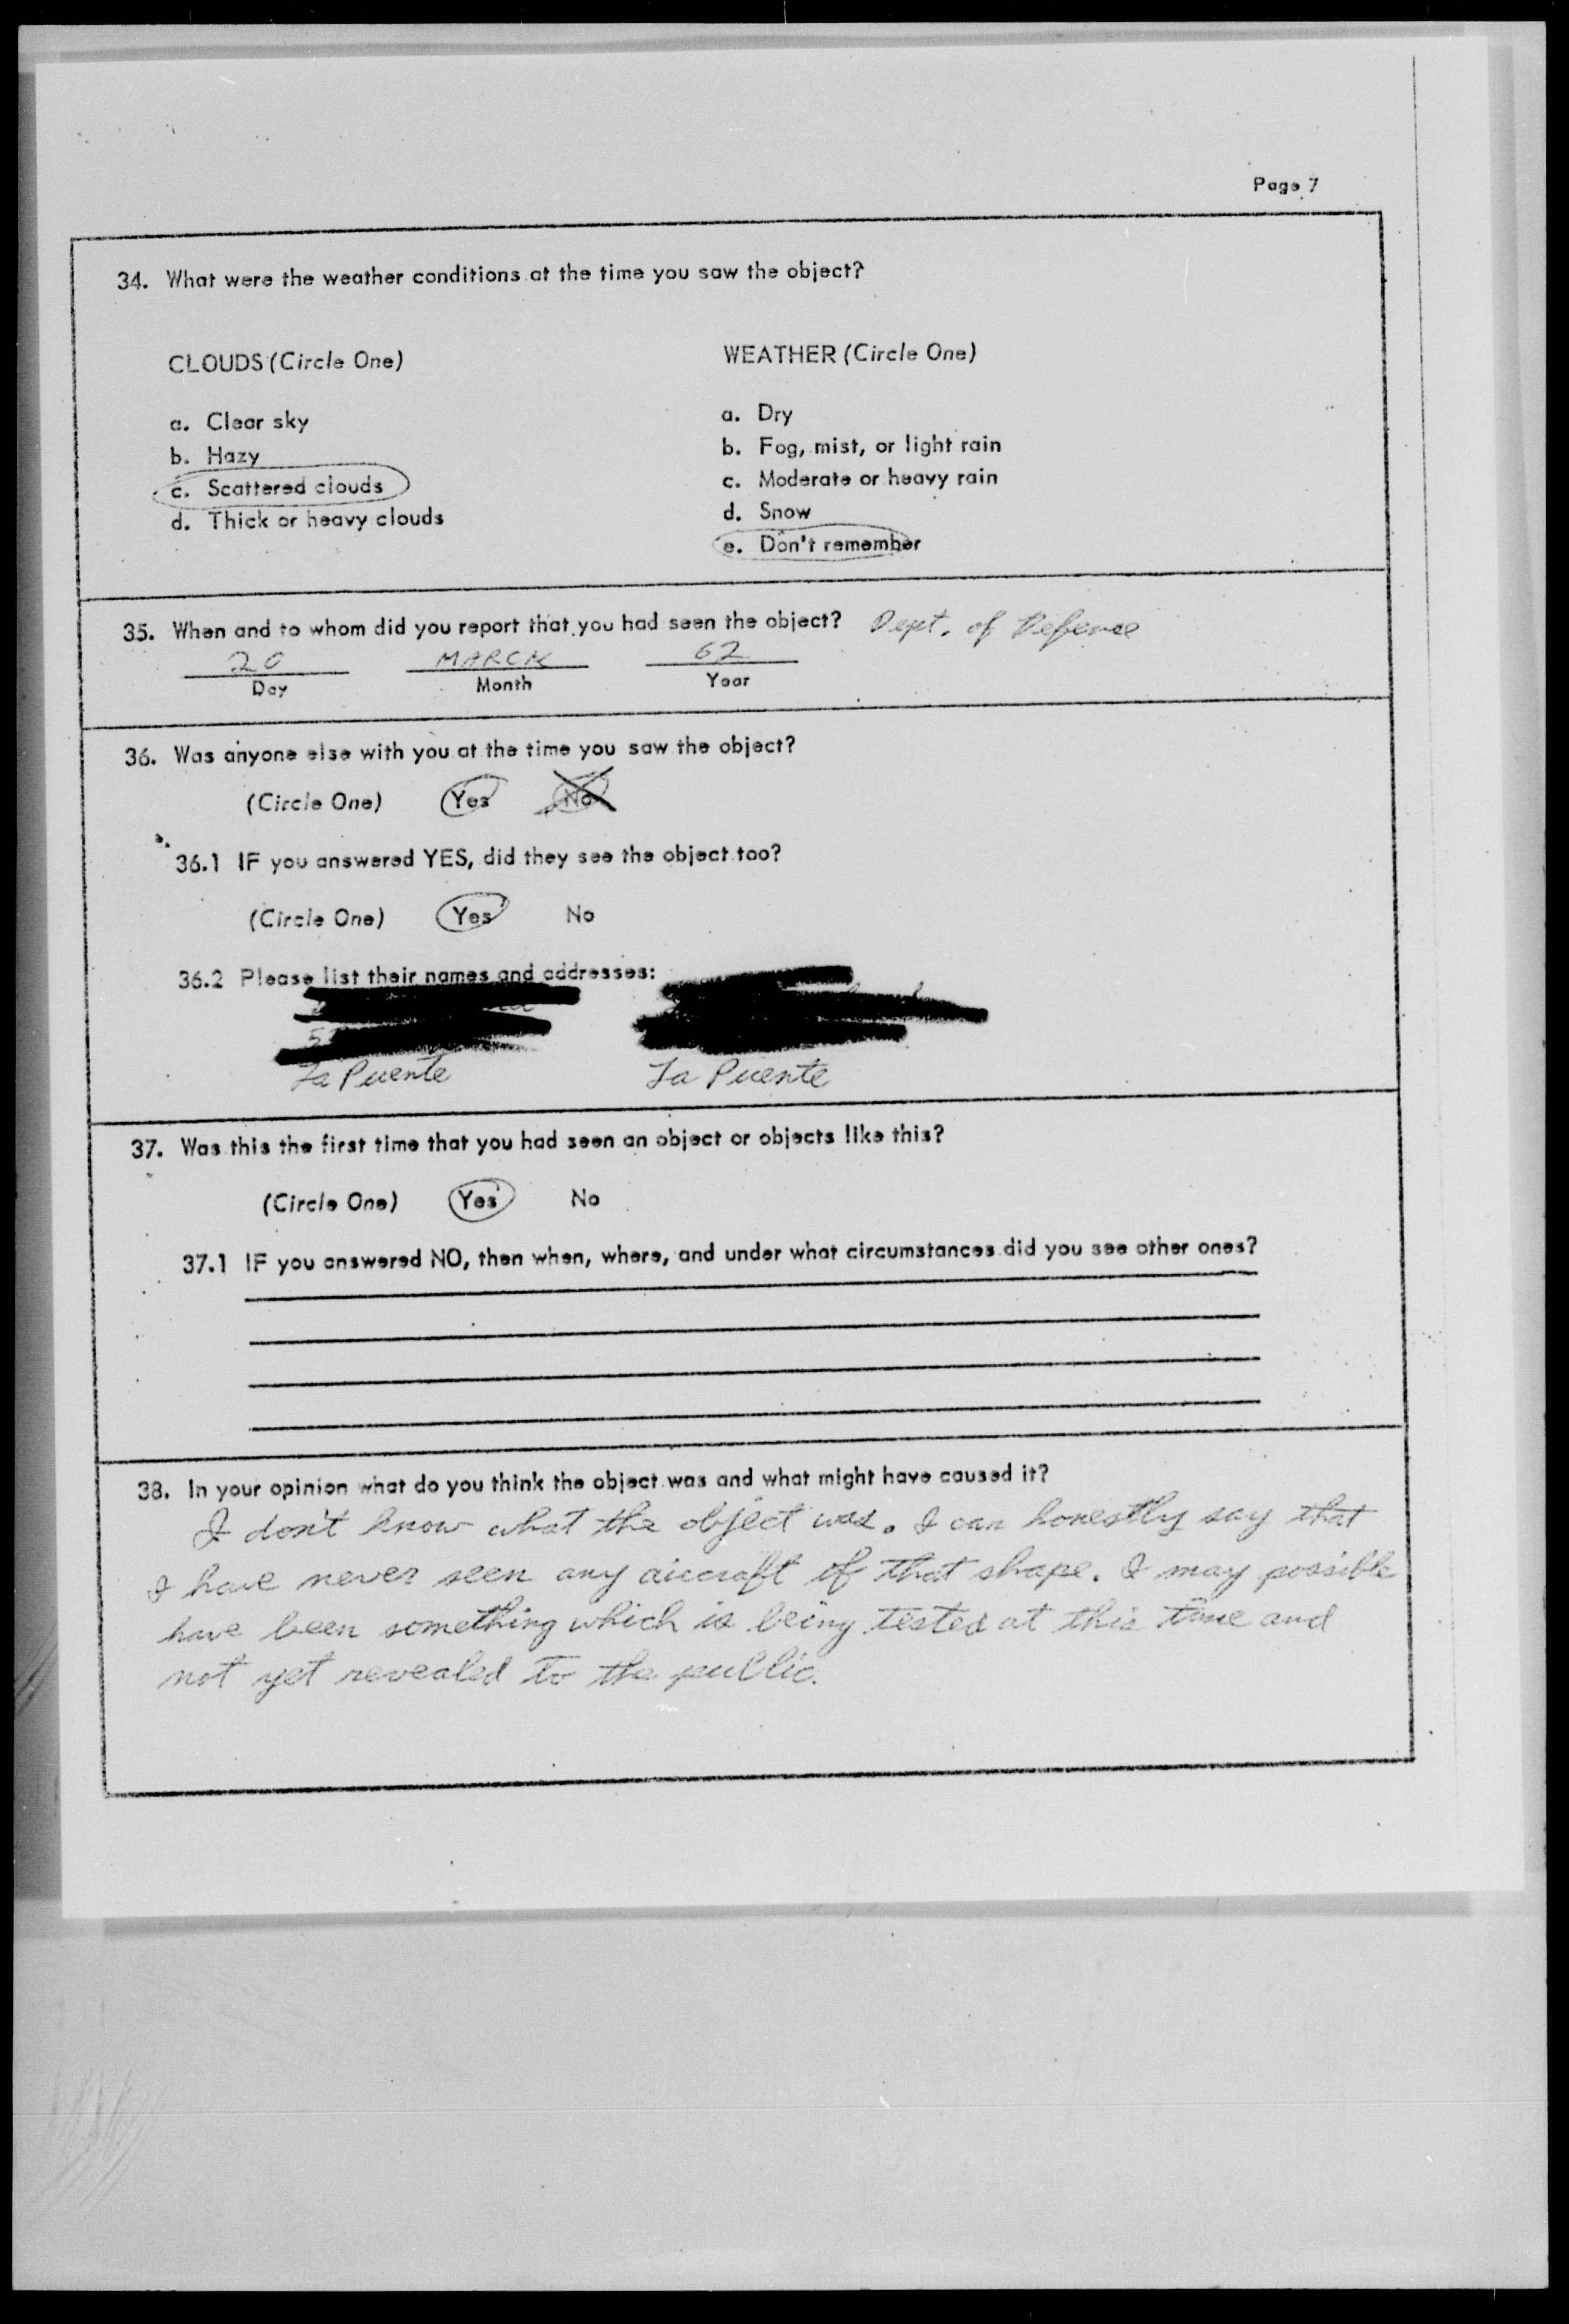 Page 7
34. What were the weather conditions at the time you saw the object?
CLOUDS (Circle One)
a. Clear sky
b. Hazy
c. Scattered clouds
d. Thick or heavy clouds
WEATHER (Circle One)
a. Dry
b. Fog, mist, or light rain
c. Moderate or heavy rain
d. Snow
e. Don't remember
35. When and to whom did you report that you had seen the object? Dept. of Defense
20 MARCH 62
Day Month Year
36. Was anyone else with you at the time you saw the object?
(Circle One) Yes No
36.1 IF you answered YES, did they see the object too?
(Circle One) Yes No
36.2 Please list their names and addresses:
La Puente La Puente
37. Was this the first time that you had seen an object or objects like this?
(Circle One) Yes No
37.1 IF you answered NO, then when, where, and under what circumstances did you see other ones?
38. In your opinion what do you think the object was and what might have caused it?
I don't know what the object was. I can honestly say that
I have never seen any aircraft of that shape. I may possible
have been something which is being tested at this time and
not yet revealed to the public.